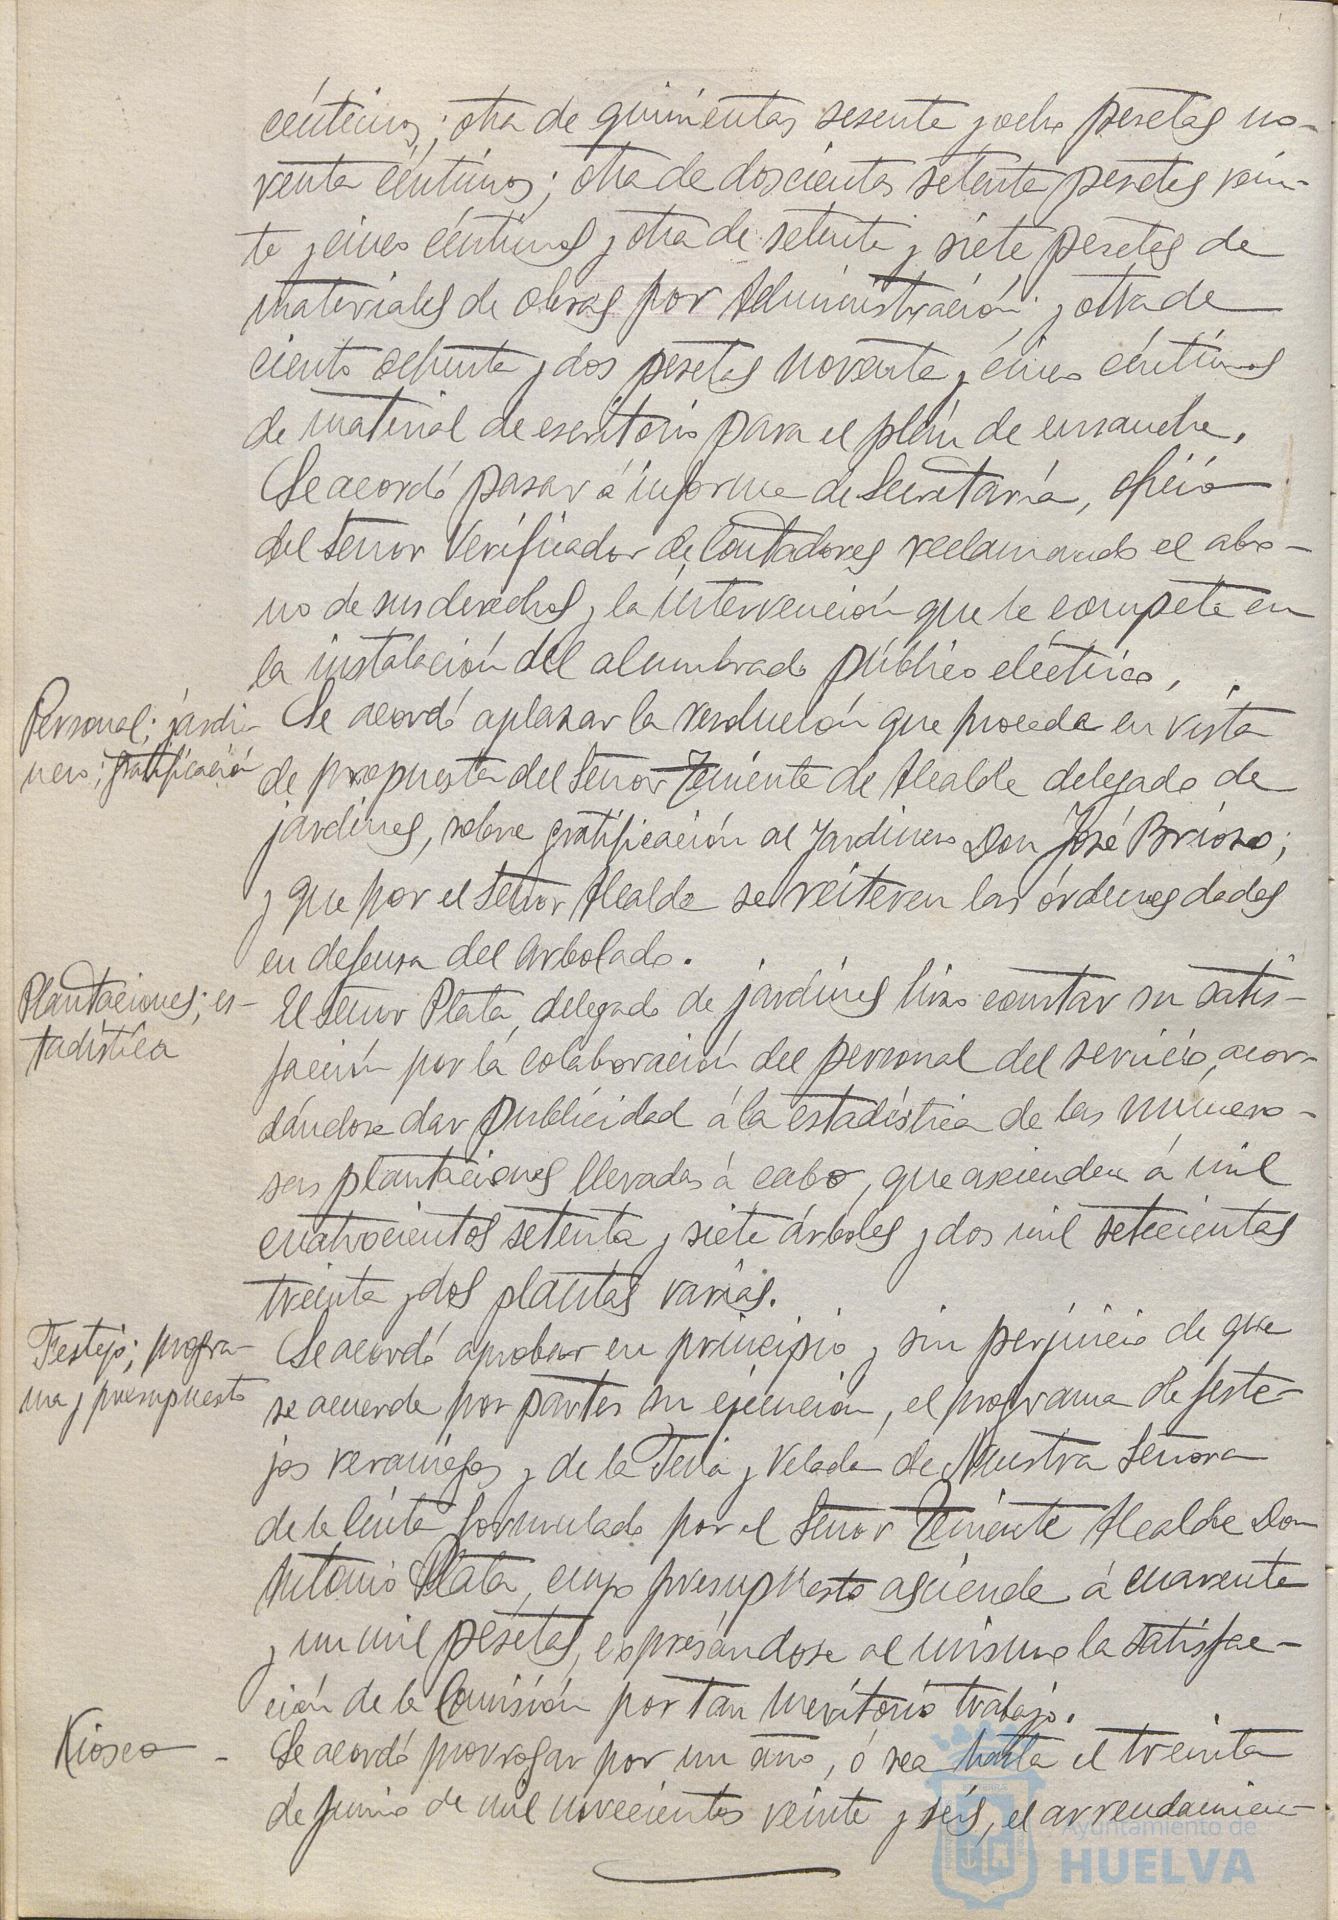 céntimos; otra de quinientas sesenta y ocho pesetas no-
venta céntimos; otra de doscientas setenta pesetas vein-
te y cinco céntimos y otra de setenta y siete pesetas de
materiales de obras por Administración y otra de
ciento ochenta y dos pesetas noventa y cinco céntimos
de material de escritorio para el plan de ensanche.
Se acordó pasar á informe de Secretaría, oficio
del Señor Verificador de Contadores reclamando el abo-
no de sus derechos y la intervención que le compete en
la instalación del alumbrado público eléctrico.
Personal; jardi-
nero; gratificación
Se acordó aplazar la resolución que proceda en vista
de propuesta del Señor Teniente de Alcalde delegado de
jardines, sobre gratificación al Jardinero Don José Brioso;
y que por el Señor Alcalde se reiteren las órdenes dadas
en defensa del arbolado.
Plantaciones; es-
tadística
El Señor Plata, delegado de jardines hizo constar su satis-
facción por la colaboración del personal del servicio, acor-
dándose dar publicidad á la estadística de las numero-
sas plantaciones llevadas á cabo, que ascienden á mil
cuatrocientos setenta y siete árboles y dos mil setecientas
treinta y dos plantas varias.
Festejo; progra-
ma y presupuesto
Se acordó aprobar en principio y sin perjuicio de que
se acuerde por partes su ejecución, el programa de feste-
jos veraniegos y de la Feria y Velada de Nuestra Señora
de la Cinta formulado por el Señor Teniente Alcalde Don
Antonio Plata, cuyo presupuesto asciende á cuarenta
y un mil pesetas, expresándose al mismo la satisfac-
ción de la Comisión por tan meritorio trabajo.
Kiosco -
Se acordó prorrogar por un año, ó sea hasta el treinta
de Junio de mil novecientos veinte y seis, el arrendamien-
Ayuntamiento de
HUELVA